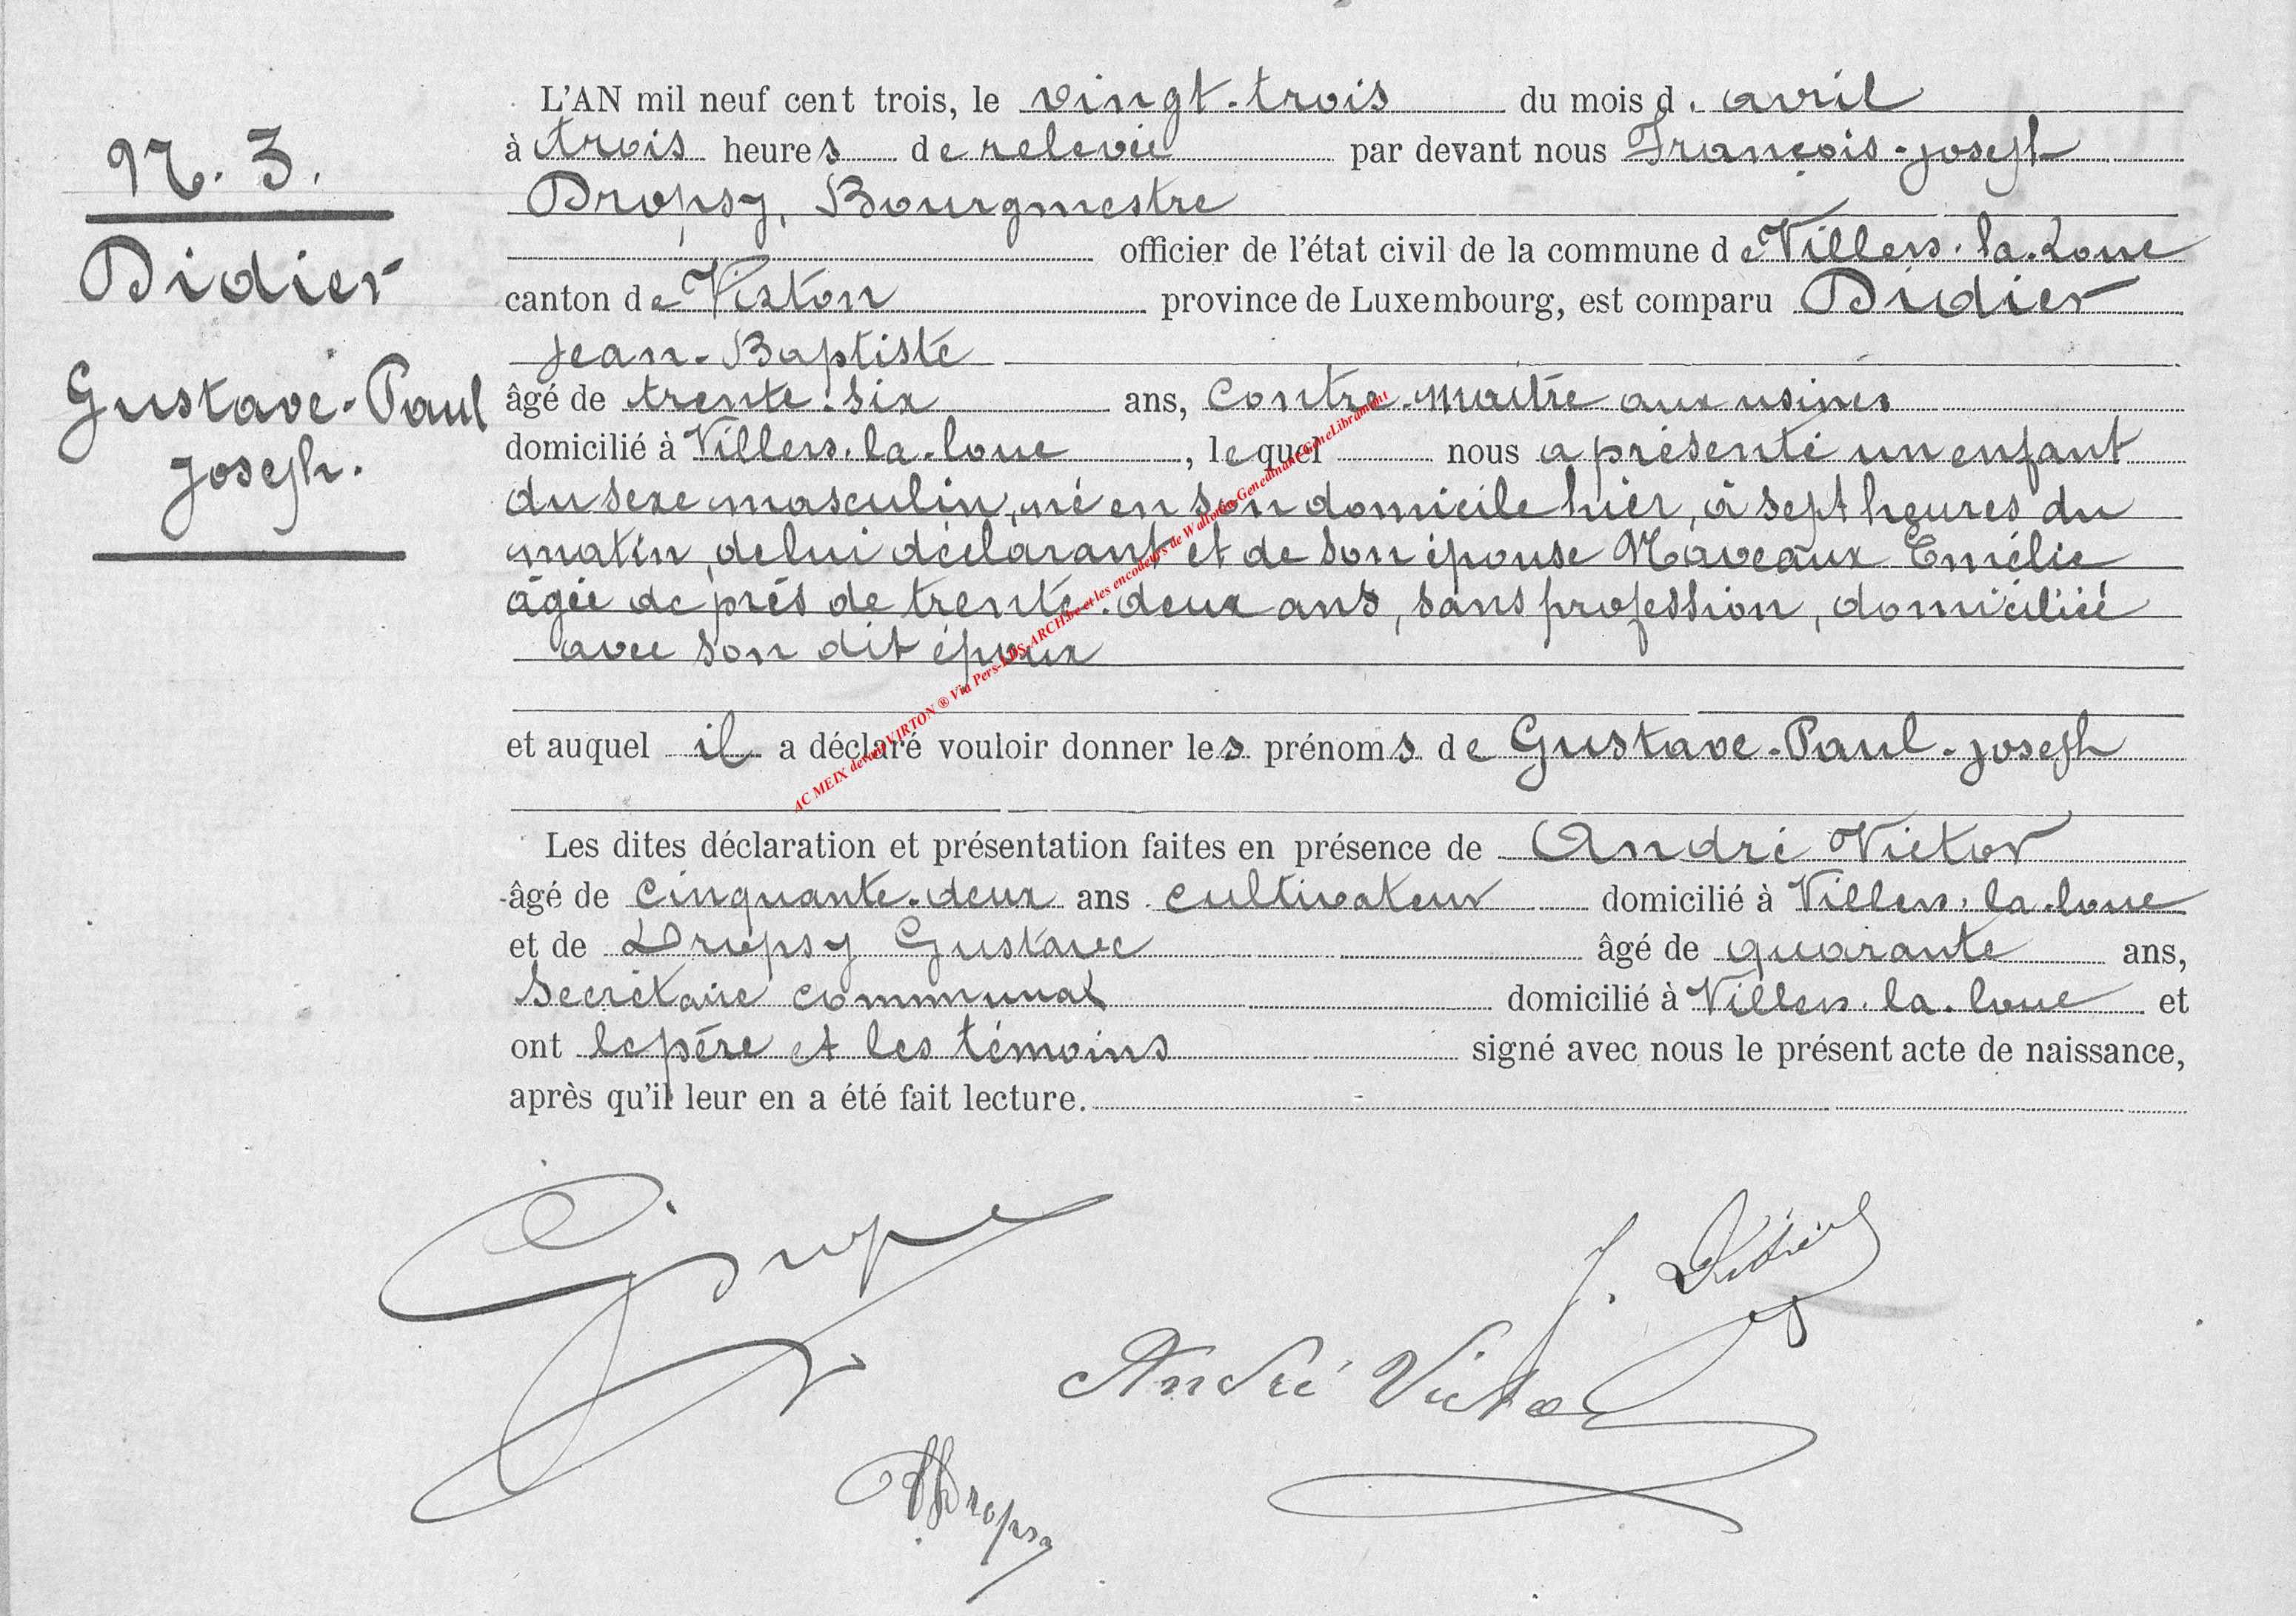 N. 3.
Didier
Gustave-Paul
Joseph.
L'AN mil neuf cent trois, le vingt-trois du mois d. avril
à trois heures de relevée par devant nous François-Joseph
Dropsy, Bourgmestre
officier de l'état civil de la commune de Villers-la-Loue
canton de Virton province de Luxembourg, est comparu Didier
Jean-Baptiste
âgé de trente-six ans, contre-maître aux usines
domicilié à Villers-la-loue, lequel nous a présenté un enfant
du sexe masculin, né en son domicile hier, à sept heures du
matin, de lui déclarant et de son épouse Maveaux Emélie
âgée de près de trente-deux ans, sans profession, domiciliée
avec son dit époux
et auquel il a déclaré vouloir donner les prénoms de Gustave-Paul-Joseph
Les dites déclaration et présentation faites en présence de André Victor
âgé de cinquante-deux ans cultivateur domicilié à Villers-la-loue
et de Dropsy Gustave âgé de quarante ans,
secrétaire communal domicilié à Villers-la-loue et
ont le père et les témoins signé avec nous le présent acte de naissance,
après qu'il leur en a été fait lecture.
AC MEIX devant VIRTON ® Via Pers-LDS-ARCH.be et les encodeurs de Wallonia-Genedinant-GeneLibramont
J. Didier
André Victor
Dropsy